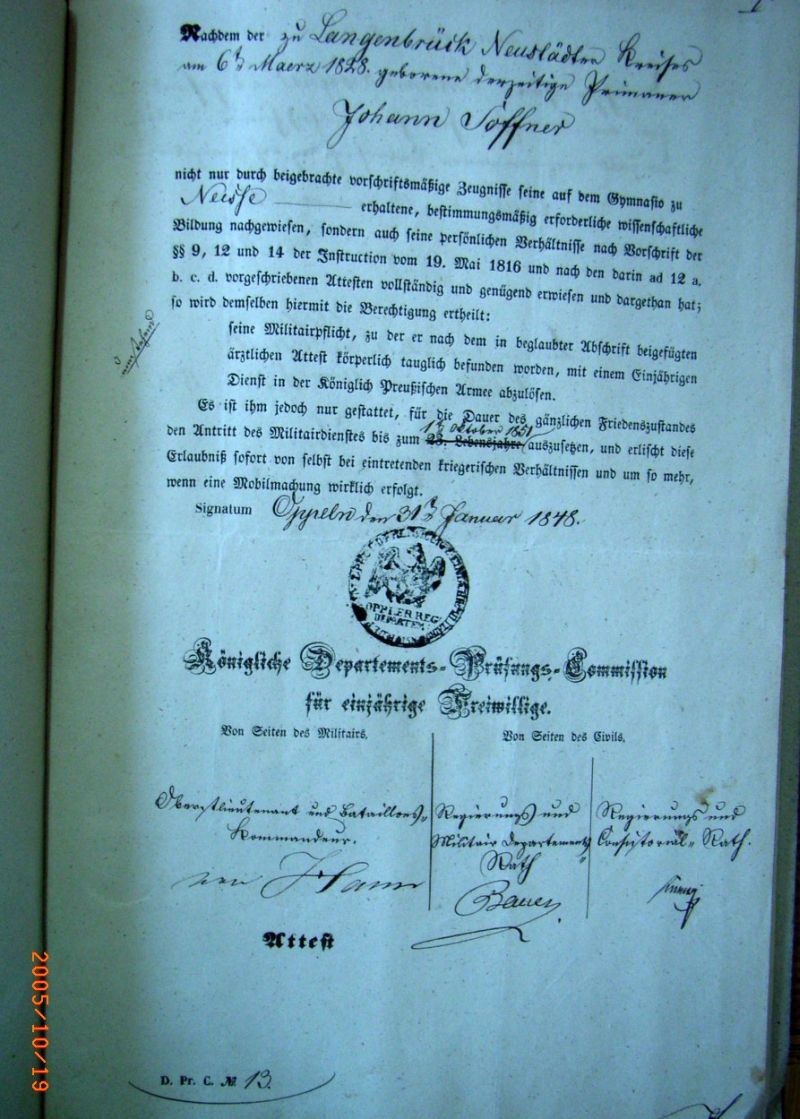 Nachdem der zu Langenbrück Neustädter Kreises
am 6t Maerz 1828. geborene derzeitige Primaner
Johann Soffner
nicht nur durch beigebrachte vorschriftsmäßige Zeugnisse seine auf dem Gymnasio zu
Neisse erhaltene, bestimmungsmäßig erforderliche wissenschaftliche
Bildung nachgewiesen, sondern auch seine persönlichen Verhältnisse nach Vorschrift der
§§ 9, 12 und 14 der Instruction vom 19. Mai 1816 und nach den darin ad 12 a.
b. c. d. vorgeschriebenen Attesten vollständig und genügend erwiesen und dargethan hat;
so wird demselben hiermit die Berechtigung ertheilt:
seine Militairpflicht, zu der er nach dem in beglaubter Abschrift beigefügten
ärztlichen Attest körperlich tauglich befunden worden, mit einem Einjährigen
Dienst in der Königlich Preußischen Armee abzulösen.
Es ist ihm jedoch nur gestattet, für die Dauer des gänzlichen Friedenszustandes
1t Oktober 1851
den Antritt des Militairdienstes bis zum 23. Lebensjahre auszusetzen, und erlischt diese
Erlaubniß sofort von selbst bei eintretenden kriegerischen Verhältnissen und um so mehr,
wenn eine Mobilmachung wirklich erfolgt.
Signatum Oppeln den 31t Januar 1848.
OPPLER REG:
DEPARTEM:
Königliche Departements-Prüfungs-Commission
für einjährige Freiwillige.
Von Seiten des Militairs. Von Seiten des Civils.
Oberstlieutenant und Bataillons- Kommandeur.
von
Regierungs und
Militair Departements
Rath
Bauer
Regierungs und
Consistorial-Rath.
Attest
D. Pr. C. № 13.
2005/10/19